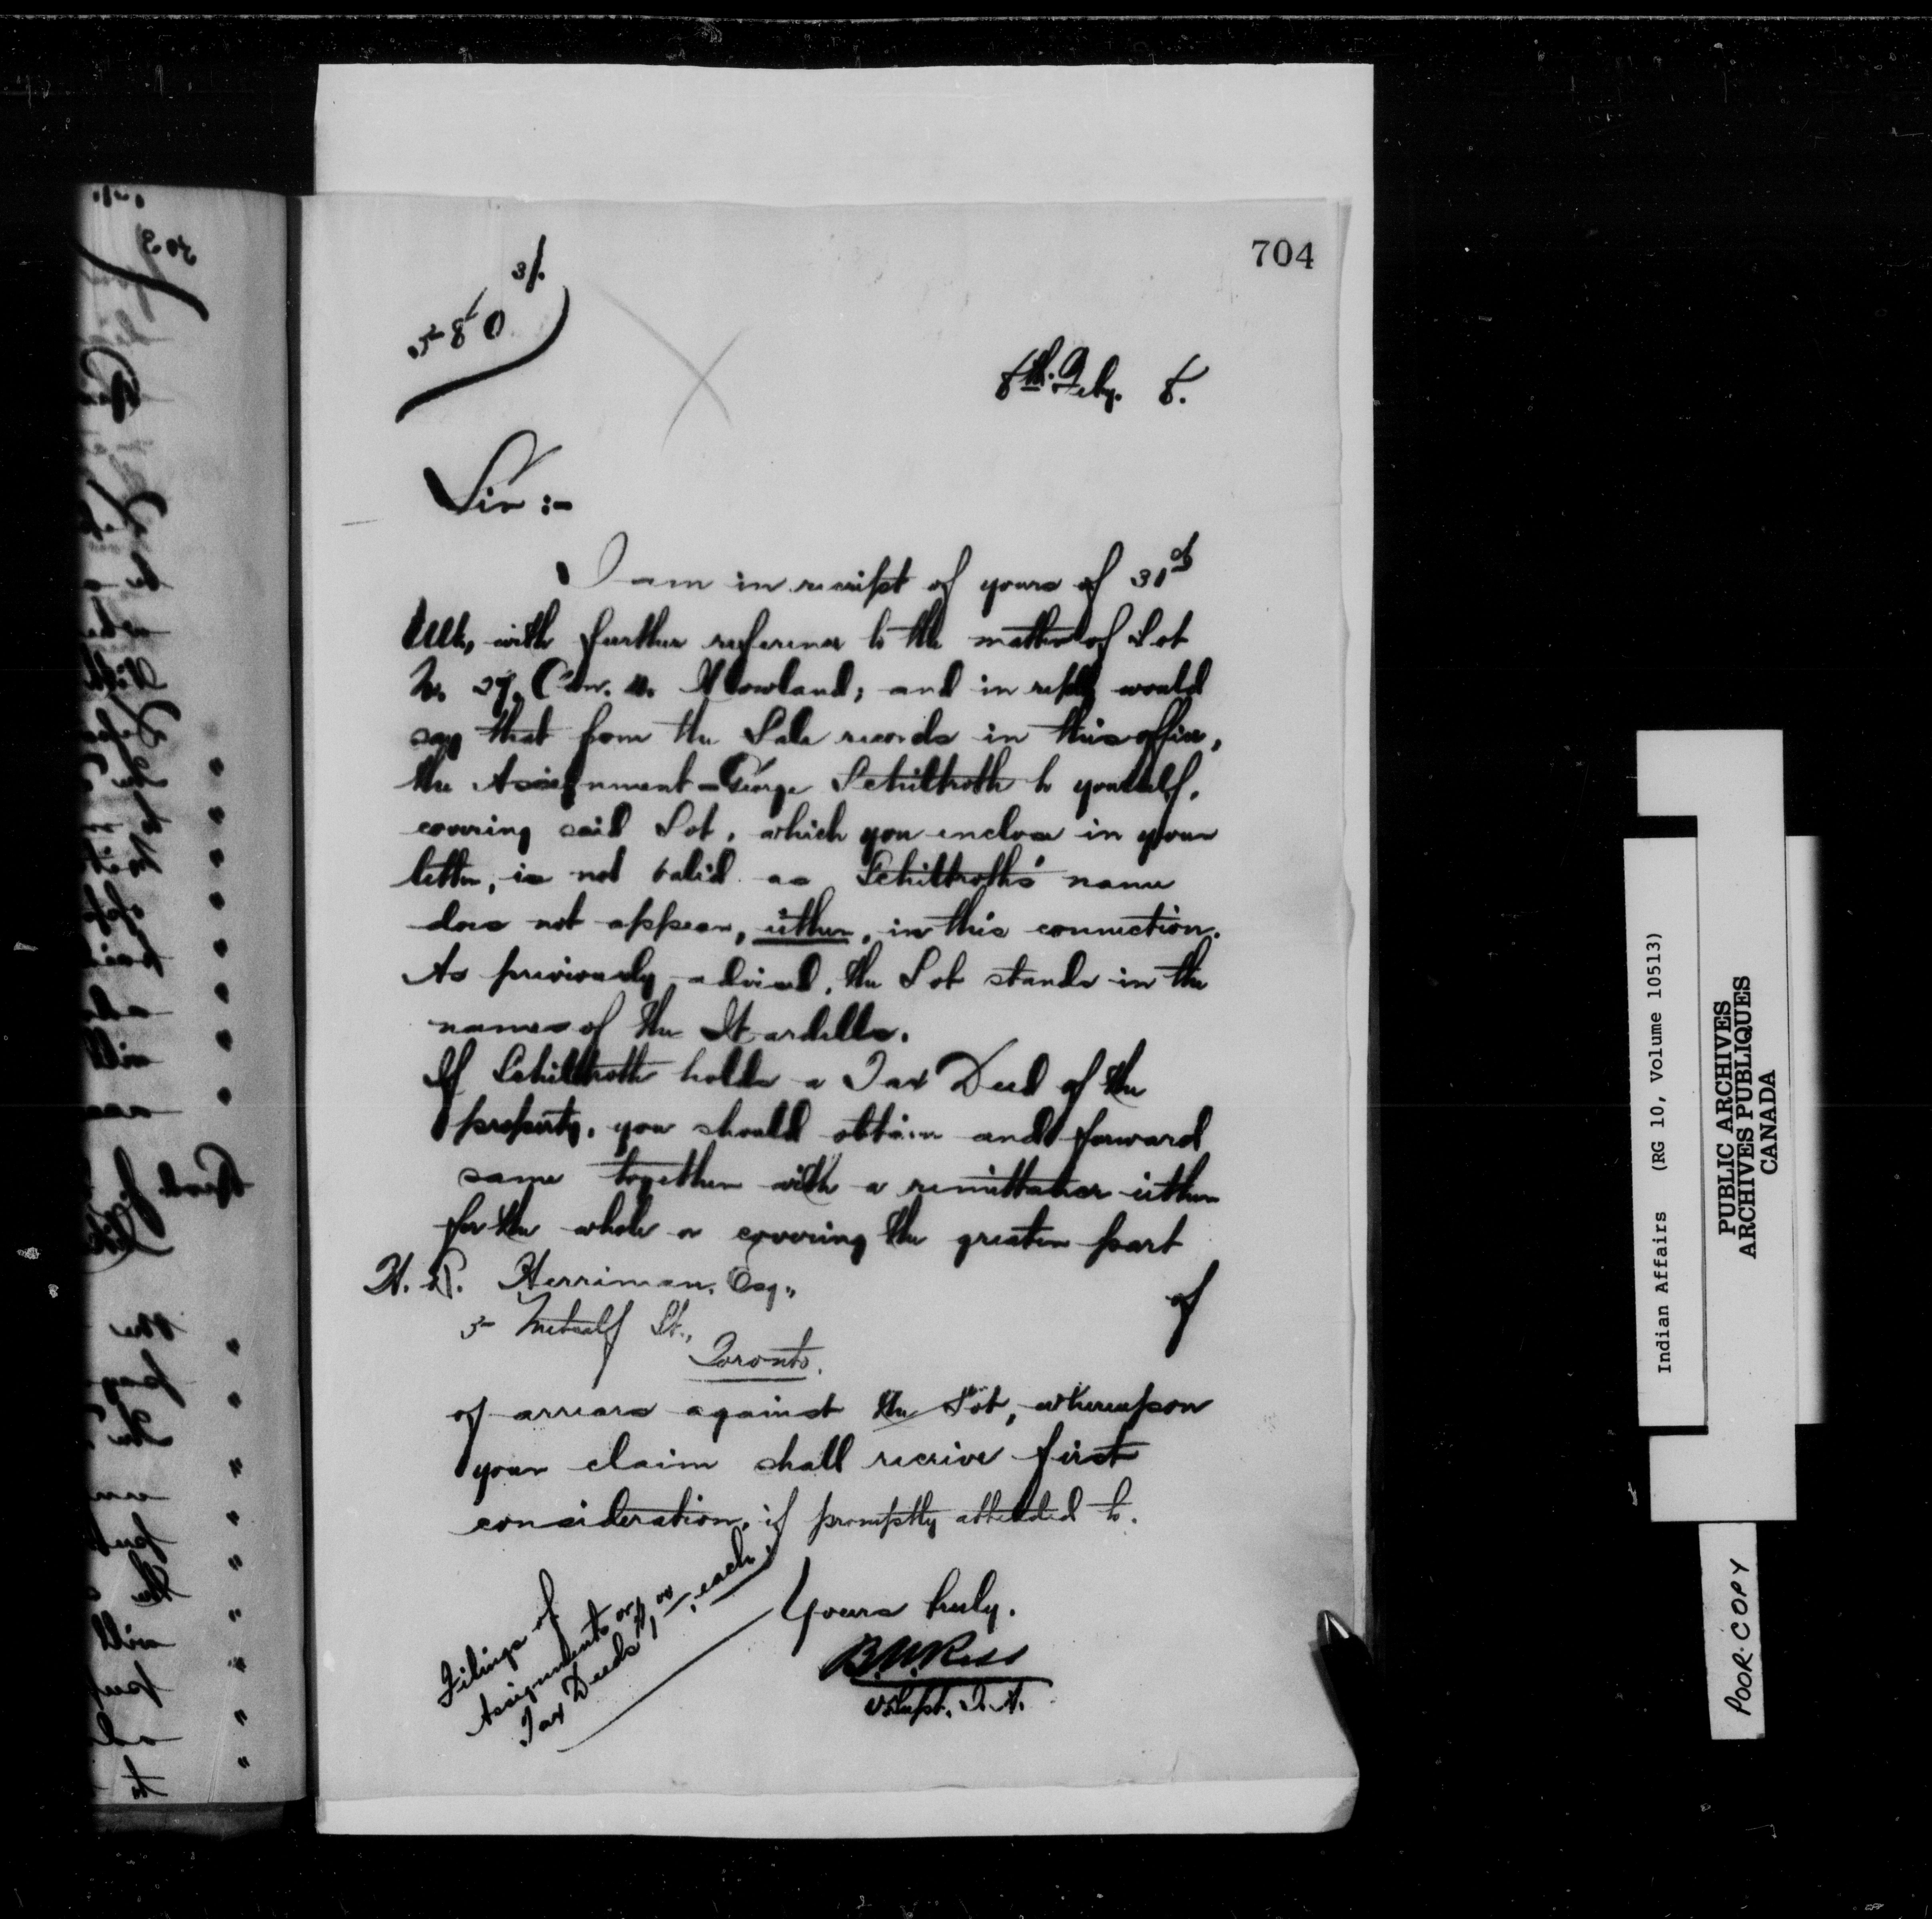 704
580 3/.
8th. Feby. 8.
Sir :-
I am in receipt of yours of 31st
Ult, with further reference to the matter of Lot
No. 27, Con. Howland; and in reply would
say that from the Sale records in this office,
the Assignment - George Schiltroth to yourself,
covering said Lot, which you enclose in your
letter, is not valid as Schiltroth's name
does not appear, either, in this connection.
As previously advised, the Lot stands in the
names of the
If Schiltroth holds a Tax Deed of the
property, you should obtain and forward
same together with a remittance either
for the whole or covering the greater part
H. Herriman, Esq.,
of
5 Metcalf St.,
Toronto.
of arrears against the Lot, whereupon
your claim shall receive first
consideration, if promptly attended to.
Filings of
Assignments or
Tax Deeds $1.00, each.
Yours truly,
B.W. Ross
Supt. I. A.
Indian Affairs (RG 10, Volume 10513)
PUBLIC ARCHIVES
ARCHIVES PUBLIQUES
CANADA
POOR COPY